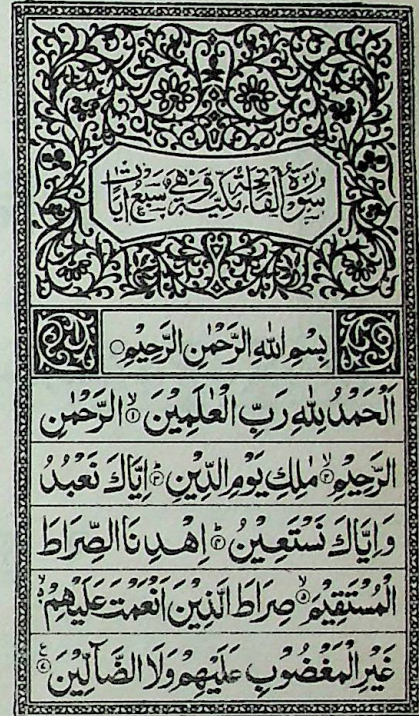 سُورَةُ الْفَاتِحَةِ مَكِّيَّةٌ وَّهِيَ سَبْعُ اٰيَاتٍ
بِسْمِ اللهِ الرَّحْمٰنِ الرَّحِيْمِ ○
اَلْحَمْدُ لِلّٰهِ رَبِّ الْعٰلَمِيْنَ ۙ﴿۱﴾ الرَّحْمٰنِ
الرَّحِيْمِ ۙ﴿۲﴾ مٰلِكِ يَوْمِ الدِّيْنِ ؕ﴿۳﴾ اِيَّاكَ نَعْبُدُ
وَاِيَّاكَ نَسْتَعِيْنُ ؕ﴿۴﴾ اِهْدِنَا الصِّرَاطَ
الْمُسْتَقِيْمَ ۙ﴿۵﴾ صِرَاطَ الَّذِيْنَ اَنْعَمْتَ عَلَيْهِمْ ۙ﴿۶﴾
غَيْرِ الْمَغْضُوْبِ عَلَيْهِمْ وَلَا الضَّآلِّيْنَ ﴿۷﴾ ع